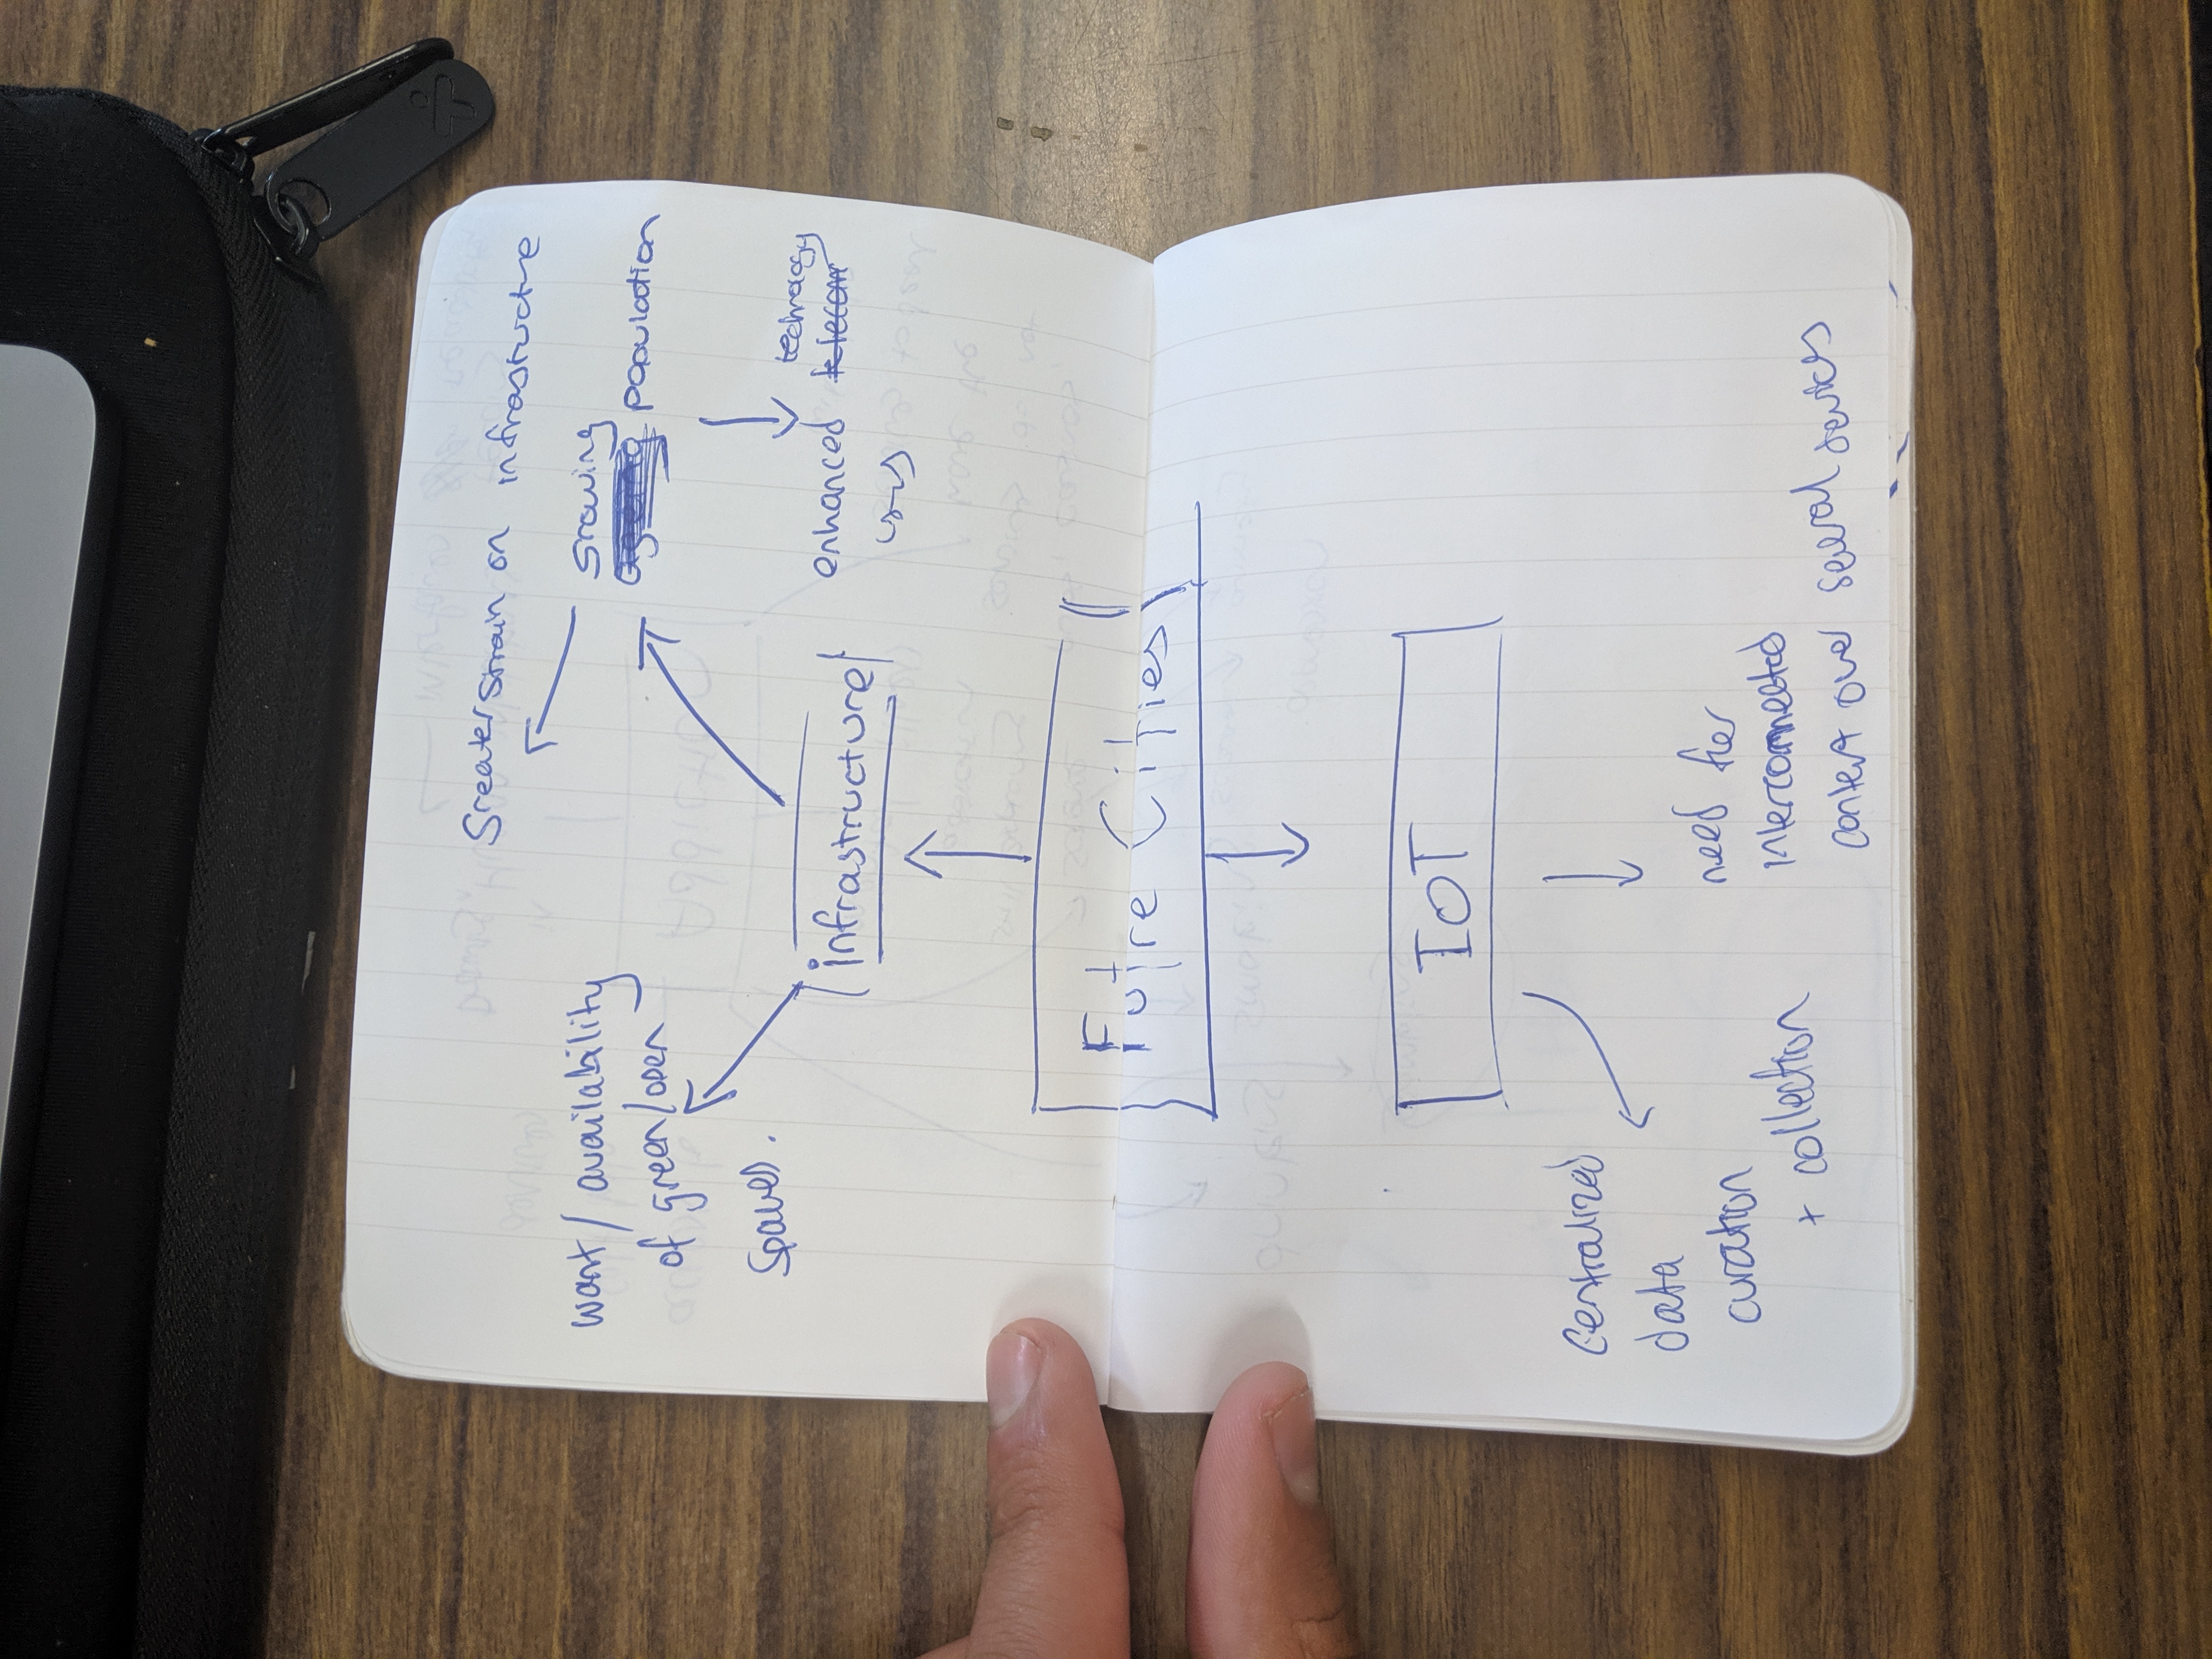 Greater strain on infrastructure
want / availability
of green/open
spaces.
growing
population
enhanced technology
telecom
infrastructure
Future Cities
IOT
Centralized
data
curation
+ collection
need for
interconnected
content over several devices